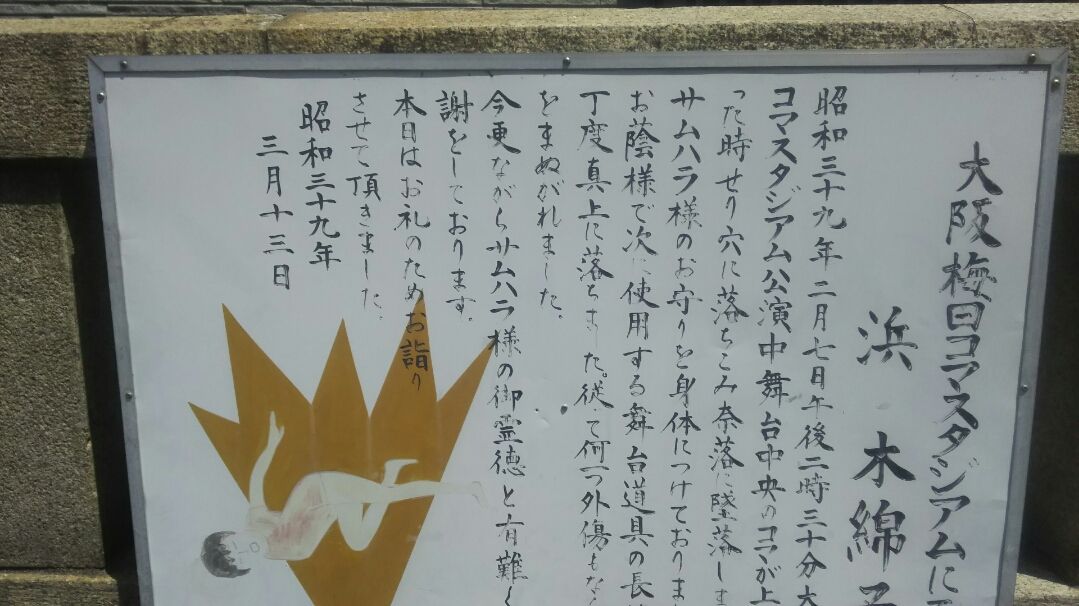 大阪梅田コマスタジアムに
浜木綿子
昭和三十九年二月七日午後二時三十分大
コマスタジアム公演中舞台中央のコマが上
った時せり穴に落ちこみ奈落に墜落しま
サムハラ様のお守りを身体につけておりま
お蔭様で次に使用する舞台道具の長
丁度真上に落ちました。従って何一つ外傷もな
をまぬがれました。
今更ながらサムハラ様の御霊徳と有難く
謝をしております。
本日はお礼のためお詣り
させて頂きました。
昭和三十九年
三月十三日